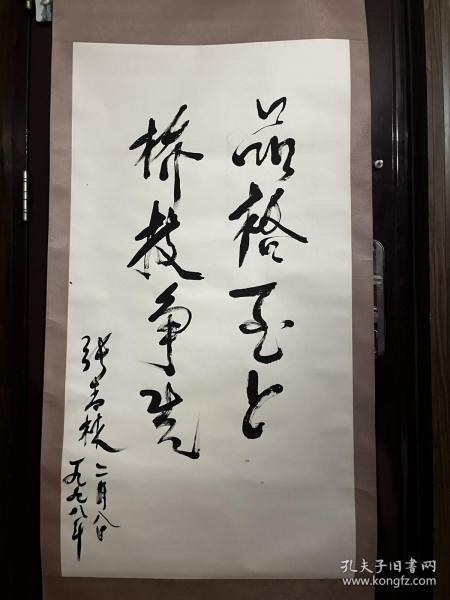 品格至上
桥牌争先
张吉林
一九九八年二月八日
孔夫子旧书网
www.kongfz.com